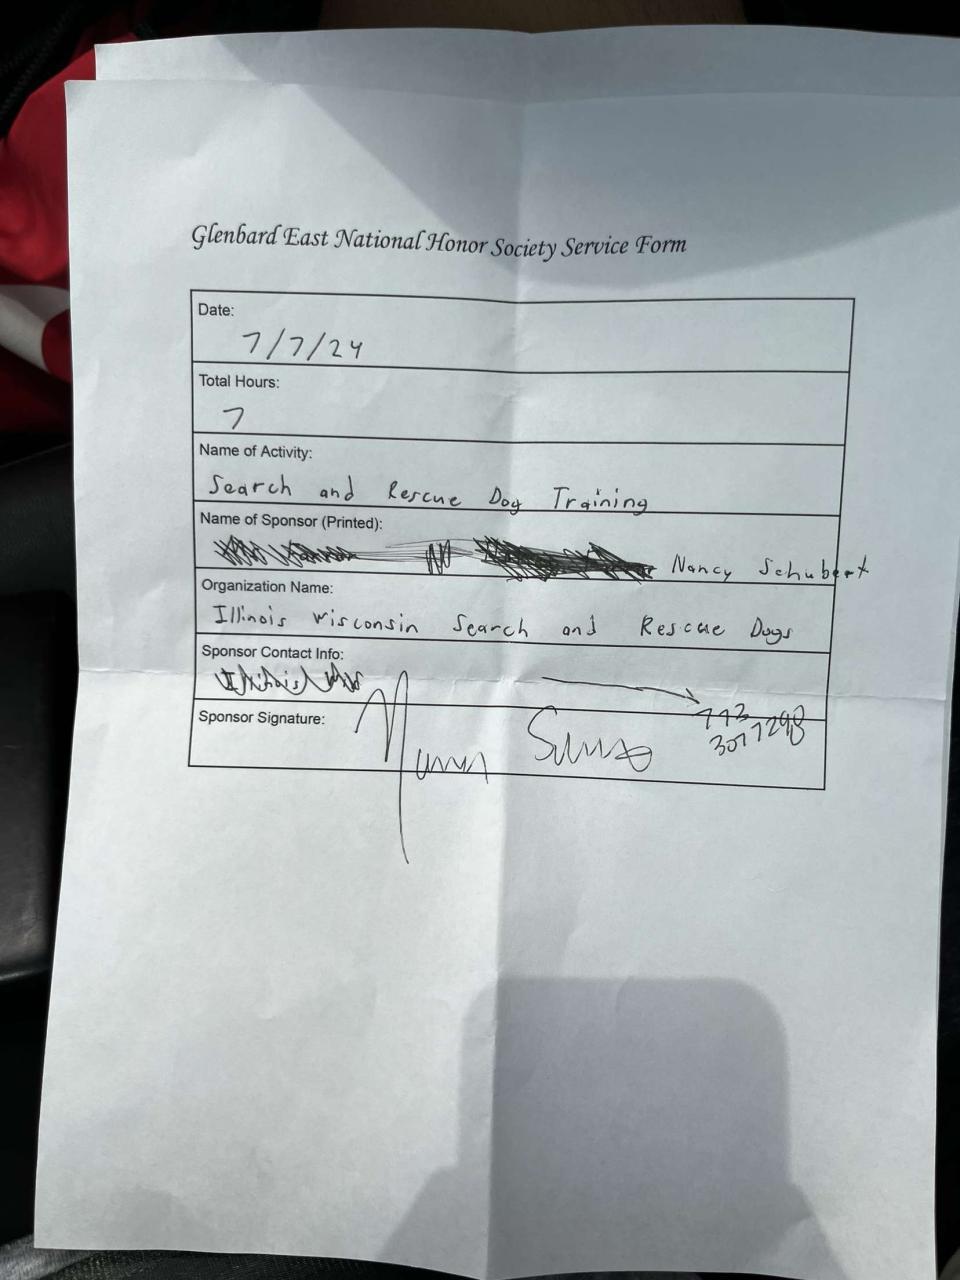 Glenbard East National Honor Society Service Form
Date:
7/7/24
Total Hours:
7
Name of Activity:
Search and Rescue Dog Training
Name of Sponsor (Printed):
Nancy Schubert
Organization Name:
Illinois Wisconsin Search and Rescue Dogs
Sponsor Contact Info:
773
307 7298
Sponsor Signature: